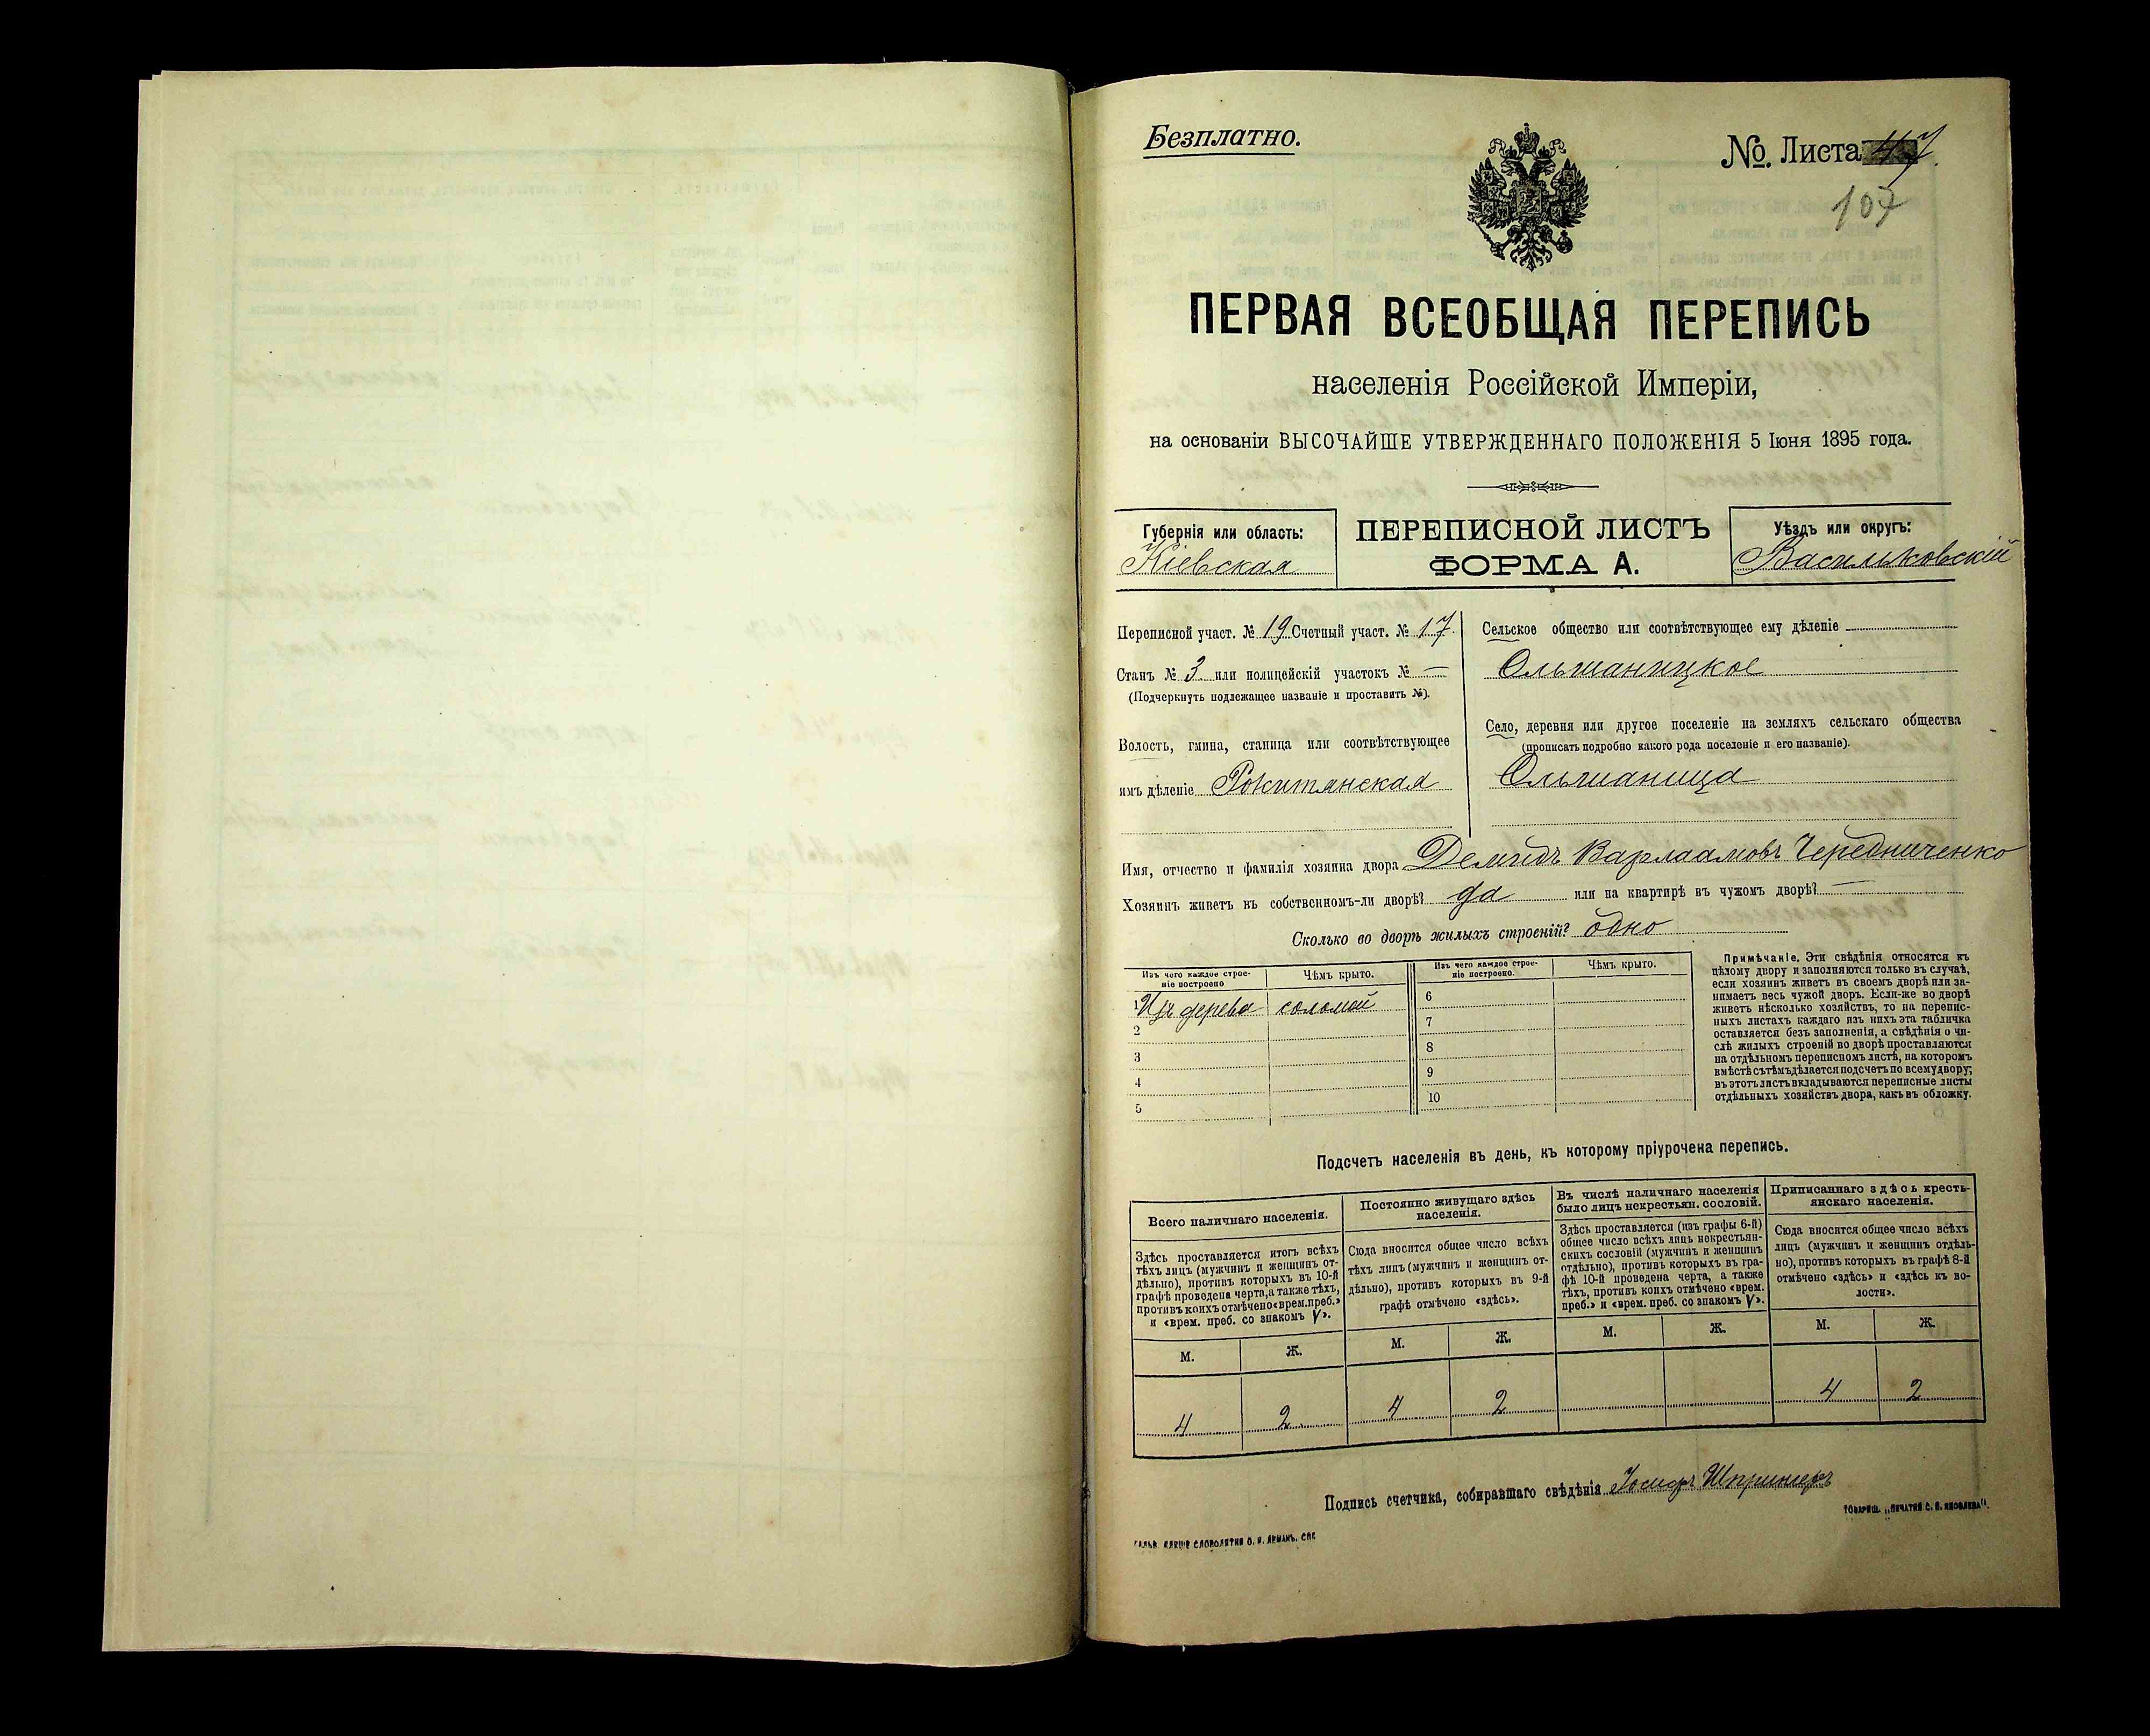 Безплатно.
№. Листа 47
107
ПЕРВАЯ ВСЕОБЩАЯ ПЕРЕПИСЬ
населенія Россійской Имперіи,
на основаніи ВЫСОЧАЙШЕ УТВЕРЖДЕННАГО ПОЛОЖЕНІЯ 5 Іюня 1895 года.
Губернія или область:
Кіевская
ПЕРЕПИСНОЙ ЛИСТЪ
ФОРМА А.
Уѣздъ или округъ:
Васильковскій
Переписной участ. № 19 Счетный участ. № 17
Станъ № 3 или полицейскій участокъ № —
(Подчеркнуть подлежащее названіе и проставить №).
Волость, гмина, станица или соотвѣтствующее
имъ дѣленіе Рокитянская
Сельское общество или соотвѣтствующее ему дѣленіе
Ольшаницкое
Село, деревня или другое поселеніе на земляхъ сельскаго общества
(прописать подробно какого рода поселеніе и его названіе).
Ольшаница
Имя, отчество и фамилія хозяина двора Демидъ Варлаамовъ Чередниченко
Хозяинъ живетъ въ собственномъ-ли дворѣ? да или на квартирѣ въ чужомъ дворѣ? —
Сколько во дворѣ жилыхъ строеній? одно
Изъ чего каждое строе-
ніе построено
Чѣмъ крыто.
Изъ чего каждое строе-
ніе построено.
Чѣмъ крыто.
1 Изъ дерева соломой
2
3
4
5
6
7
8
9
10
Примѣчаніе. Эти свѣдѣнія относятся къ
цѣлому двору и заполняются только въ случаѣ,
если хозяинъ живетъ въ своемъ дворѣ или за-
нимаетъ весь чужой дворъ. Если-же во дворѣ
живетъ нѣсколько хозяйствъ, то на перепис-
ныхъ листахъ каждаго изъ нихъ эта табличка
оставляется безъ заполненія, а свѣдѣнія о чи-
слѣ жилыхъ строеній во дворѣ проставляются
на отдѣльномъ переписномъ листѣ, на которомъ
вмѣстѣ съ тѣмъ дѣлается подсчетъ по всему двору;
въ этотъ листъ вкладываются переписные листы
отдѣльныхъ хозяйствъ двора, какъ въ обложку.
Подсчетъ населенія въ день, къ которому пріурочена перепись.
Всего наличнаго населенія.
Здѣсь проставляется итогъ всѣхъ
тѣхъ лицъ (мужчинъ и женщинъ от-
дѣльно), противъ которыхъ въ 10-й
графѣ проведена черта, а также тѣхъ,
противъ коихъ отмѣчено «врем. преб.»
и «врем. преб. со знакомъ V».
М. Ж.
4 2
Постоянно живущаго здѣсь
населенія.
Сюда вносится общее число всѣхъ
тѣхъ лицъ (мужчинъ и женщинъ от-
дѣльно), противъ которыхъ въ 9-й
графѣ отмѣчено «здѣсь».
М. Ж.
4 2
Въ числѣ наличнаго населенія
было лицъ некрестьян. сословій.
Здѣсь проставляется (изъ графы 6-й)
общее число всѣхъ лицъ некрестьян-
скихъ сословій (мужчинъ и женщинъ
отдѣльно), противъ которыхъ въ гра-
фѣ 10-й проведена черта, а также
тѣхъ, противъ коихъ отмѣчено «врем.
преб.» и «врем. преб. со знакомъ V».
М. Ж.
Приписаннаго здѣсь кресть-
янскаго населенія.
Сюда вносится общее число всѣхъ
лицъ (мужчинъ и женщинъ отдѣль-
но), противъ которыхъ въ графѣ 8-й
отмѣчено «здѣсь» и «здѣсь къ во-
лости».
М. Ж.
4 2
Подпись счетчика, собиравшаго свѣдѣнія Іосифъ
ТОВАРИЩ. „ПЕЧАТНЯ С. П. ЯКОВЛЕВА".